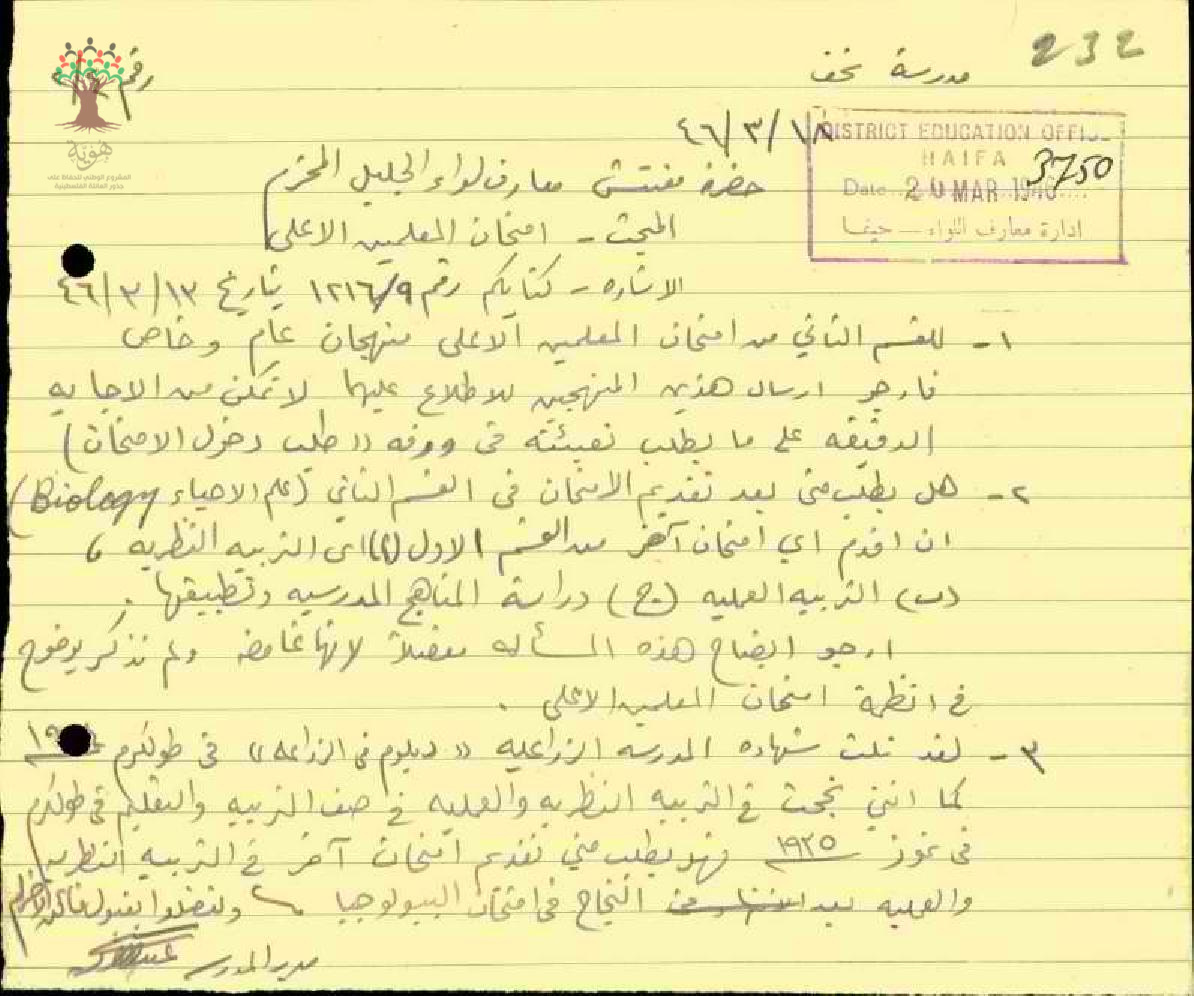 232
مدرسة نحف
رقم
٤٦/٣/١٨
DISTRICT EDUCATION OFFI
HAIFA
3750
Date 20 MAR 1946
ادارة معارف اللواء — حيفا
هوية
المشروع الوطني للحفاظ على
جذور العائلة الفلسطينية
حضرة مفتش معارف لواء الجليل المحترم
المبحث - امتحان المعلمين الاعلى
الاشاره - كتابكم رقم ١٢١٦/٩ بتاريخ ٤٦/٣/١٣
١- للقسم الثاني من امتحان المعلمين الاعلى منهجان عام وخاص
فارجو ارسال هذين المنهجين للاطلاع عليهما لاتمكن من الاجابه
الدقيقه على ما يطلب تعبئته في ورقه ((طلب دخول الامتحان)
٢- هل يطلب مني بعد تقديم الامتحان في القسم الثاني (علم الاحياء Biology)
ان اقدم اي امتحان آخر من القسم الاول (ا) اي التربيه النظريه ،
(ب) التربيه العمليه (ج) دراسة المناهج المدرسيه وتطبيقها .
ارجو ايضاح هذه المسأله مفضلاً لانها غامضه ولم تذكر بوضوح
في انظمة امتحان المعلمين الاعلى .
٣- لقد نلت شهاده المدرسه الزراعيه ((دبلوم في الزراعه)) في طولكرم
كما انني نجحت في التربيه النظريه والعمليه في صف التربيه والتعليم في طولكرم
في تموز ١٩٣٥ فهل يطلب مني تقديم امتحان آخر في التربيه النظريه
والعمليه بعد النجاح في امتحان البيولوجيا وتفضلوا بقبول فائق الاحترام
مدير المدرسه